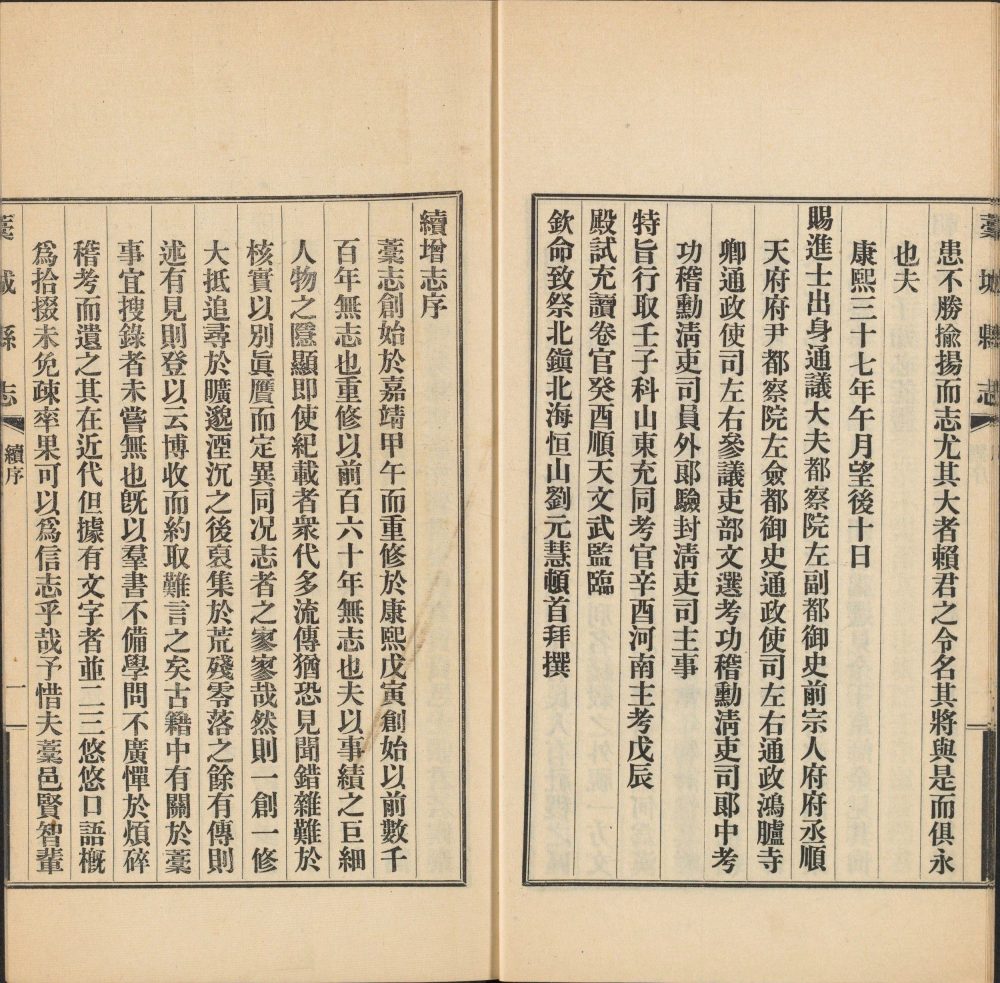 藁城縣志
患不勝揄揚而志尤其大者賴君之令名其將與是而俱永
也夫
康熙三十七年午月望後十日
賜進士出身通議大夫都察院左副都御史前宗人府府丞順
天府府尹都察院左僉都御史通政使司左右通政鴻臚寺
卿通政使司左右參議吏部文選考功稽勳淸吏司郎中考
功稽勳淸吏司員外郎驗封淸吏司主事
特旨行取壬子科山東充同考官辛酉河南主考戊辰
殿試充讀卷官癸酉順天文武監臨
欽命致祭北鎭北海恒山劉元慧頓首拜撰
續增志序
藁志創始於嘉靖甲午而重修於康熙戊寅創始以前數千
百年無志也重修以前百六十年無志也夫以事績之巨細
人物之隱顯即使紀載者衆代多流傳猶恐見聞錯雜難於
核實以別眞贋而定異同况志者之寥寥哉然則一創一修
大抵追尋於曠邈湮沉之後裒集於荒殘零落之餘有傳則
述有見則登以云博收而約取難言之矣古籍中有關於藁
事宜搜錄者未嘗無也旣以羣書不備學問不廣憚於煩碎
稽考而遺之其在近代但據有文字者並二三悠悠口語槪
爲拾掇未免疎率果可以爲信志乎哉予惜夫藁邑賢智輩
藁城縣志
續序
一